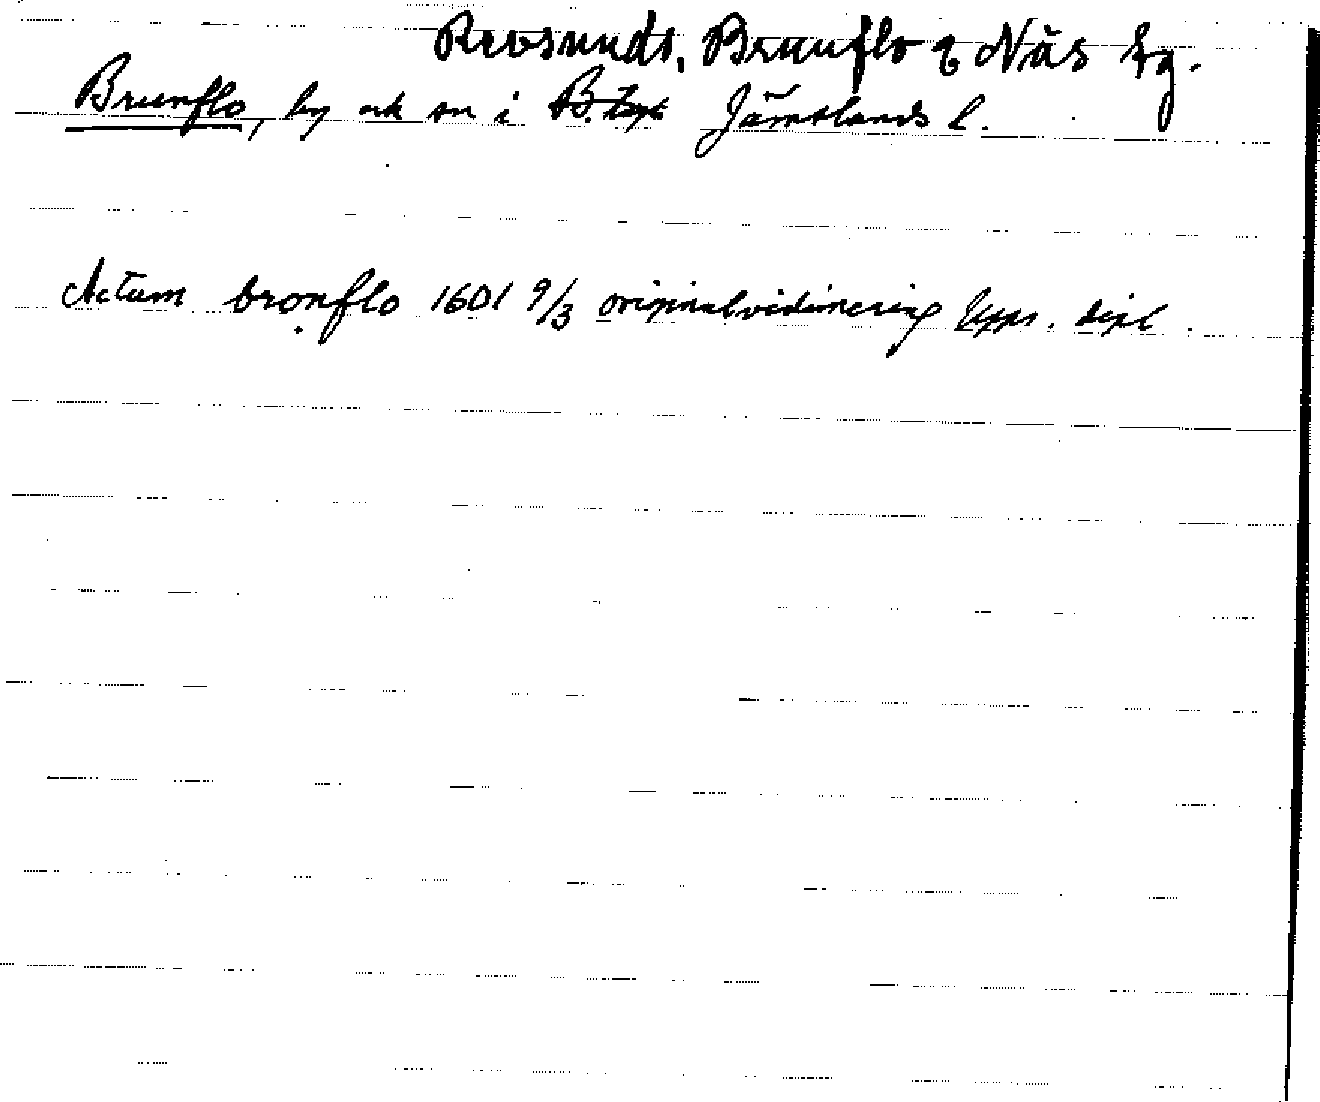 Revsunds, Brunflo o Näs tg.
Brunflo, by och sn i B. tgs Jämtlands l.
Actum bronflo 1601 9/3 originalvidimering Upps. dipl.